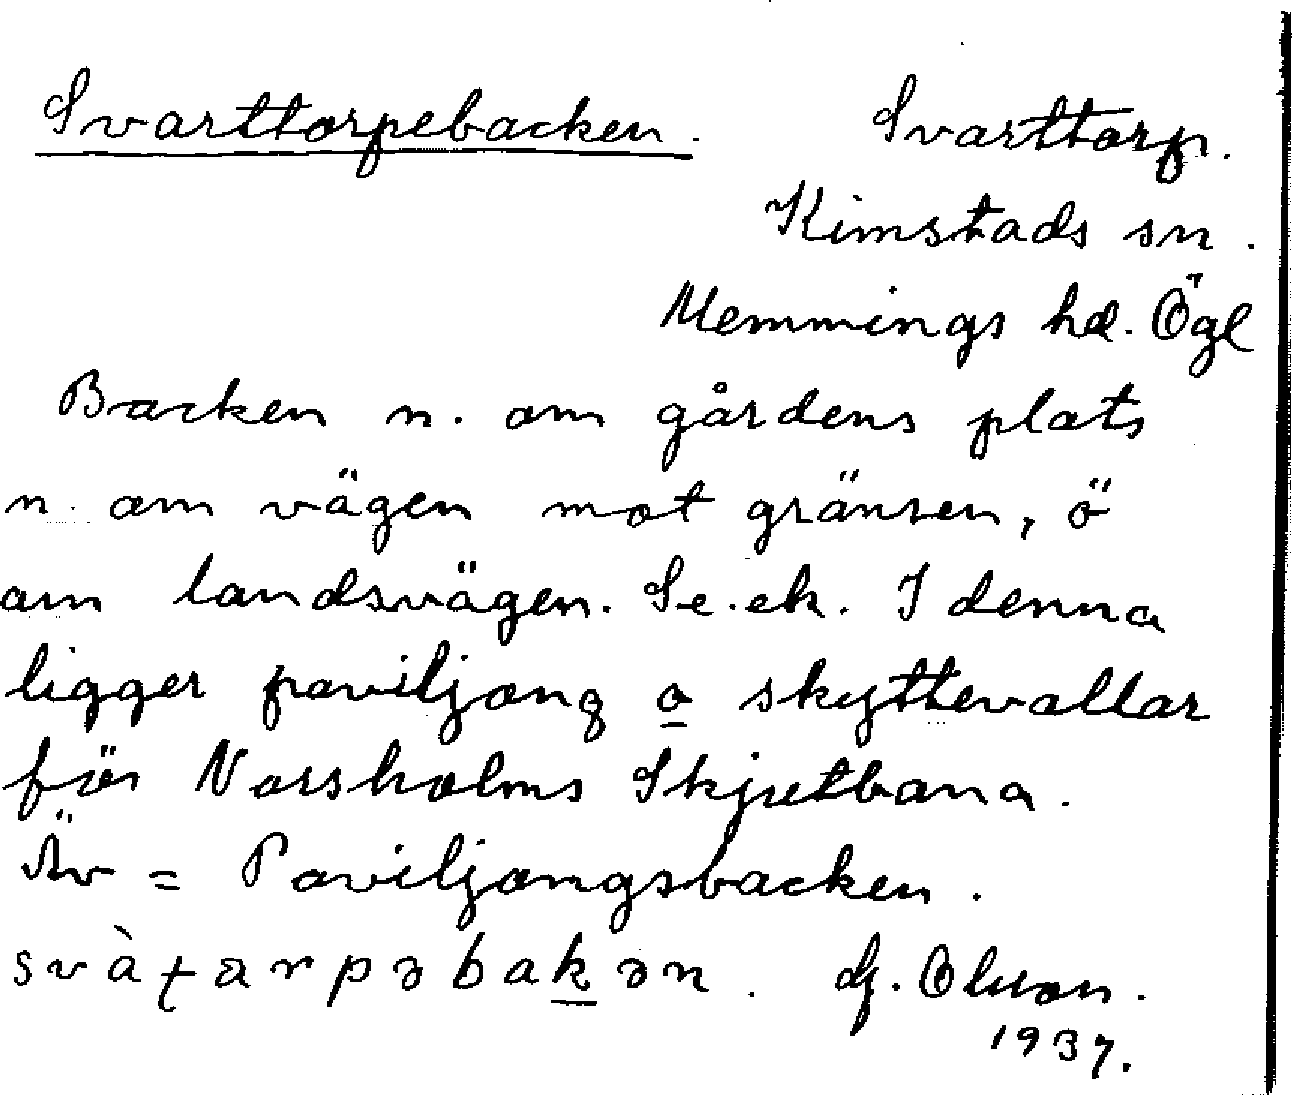 Svarttorpebacken. Svarttorp.
Kimstads sn.
Memmings hd. Ögl
Backen n. om gårdens plats
n. om vägen mot gränsen, ö
om landsvägen. Se. ek. I denna
ligger paviljong o skyttevallar
för Norsholms Skjutbana.
Äv = Paviljongsbacken.
svàţarpəbakən. G. Olson.
1937.